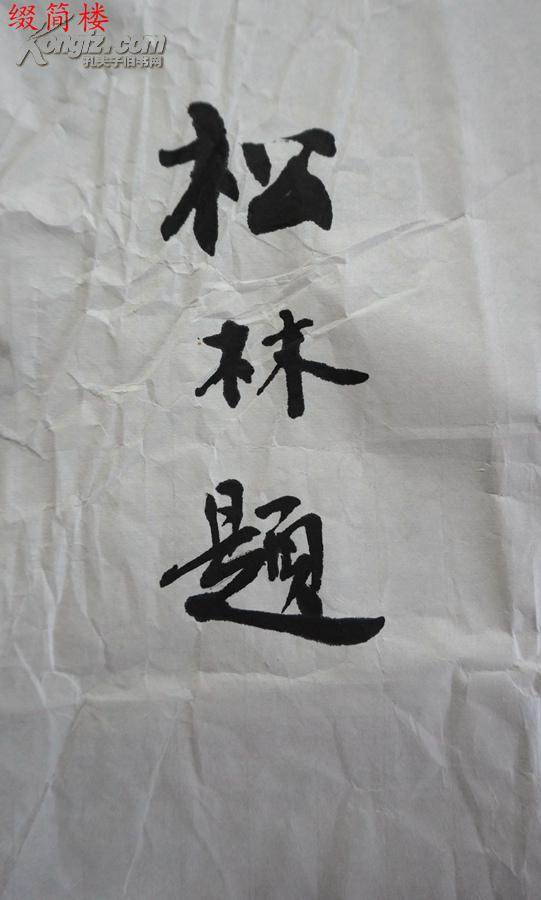 缀简楼
Kongfz.com
孔夫子旧书网
松
林
题